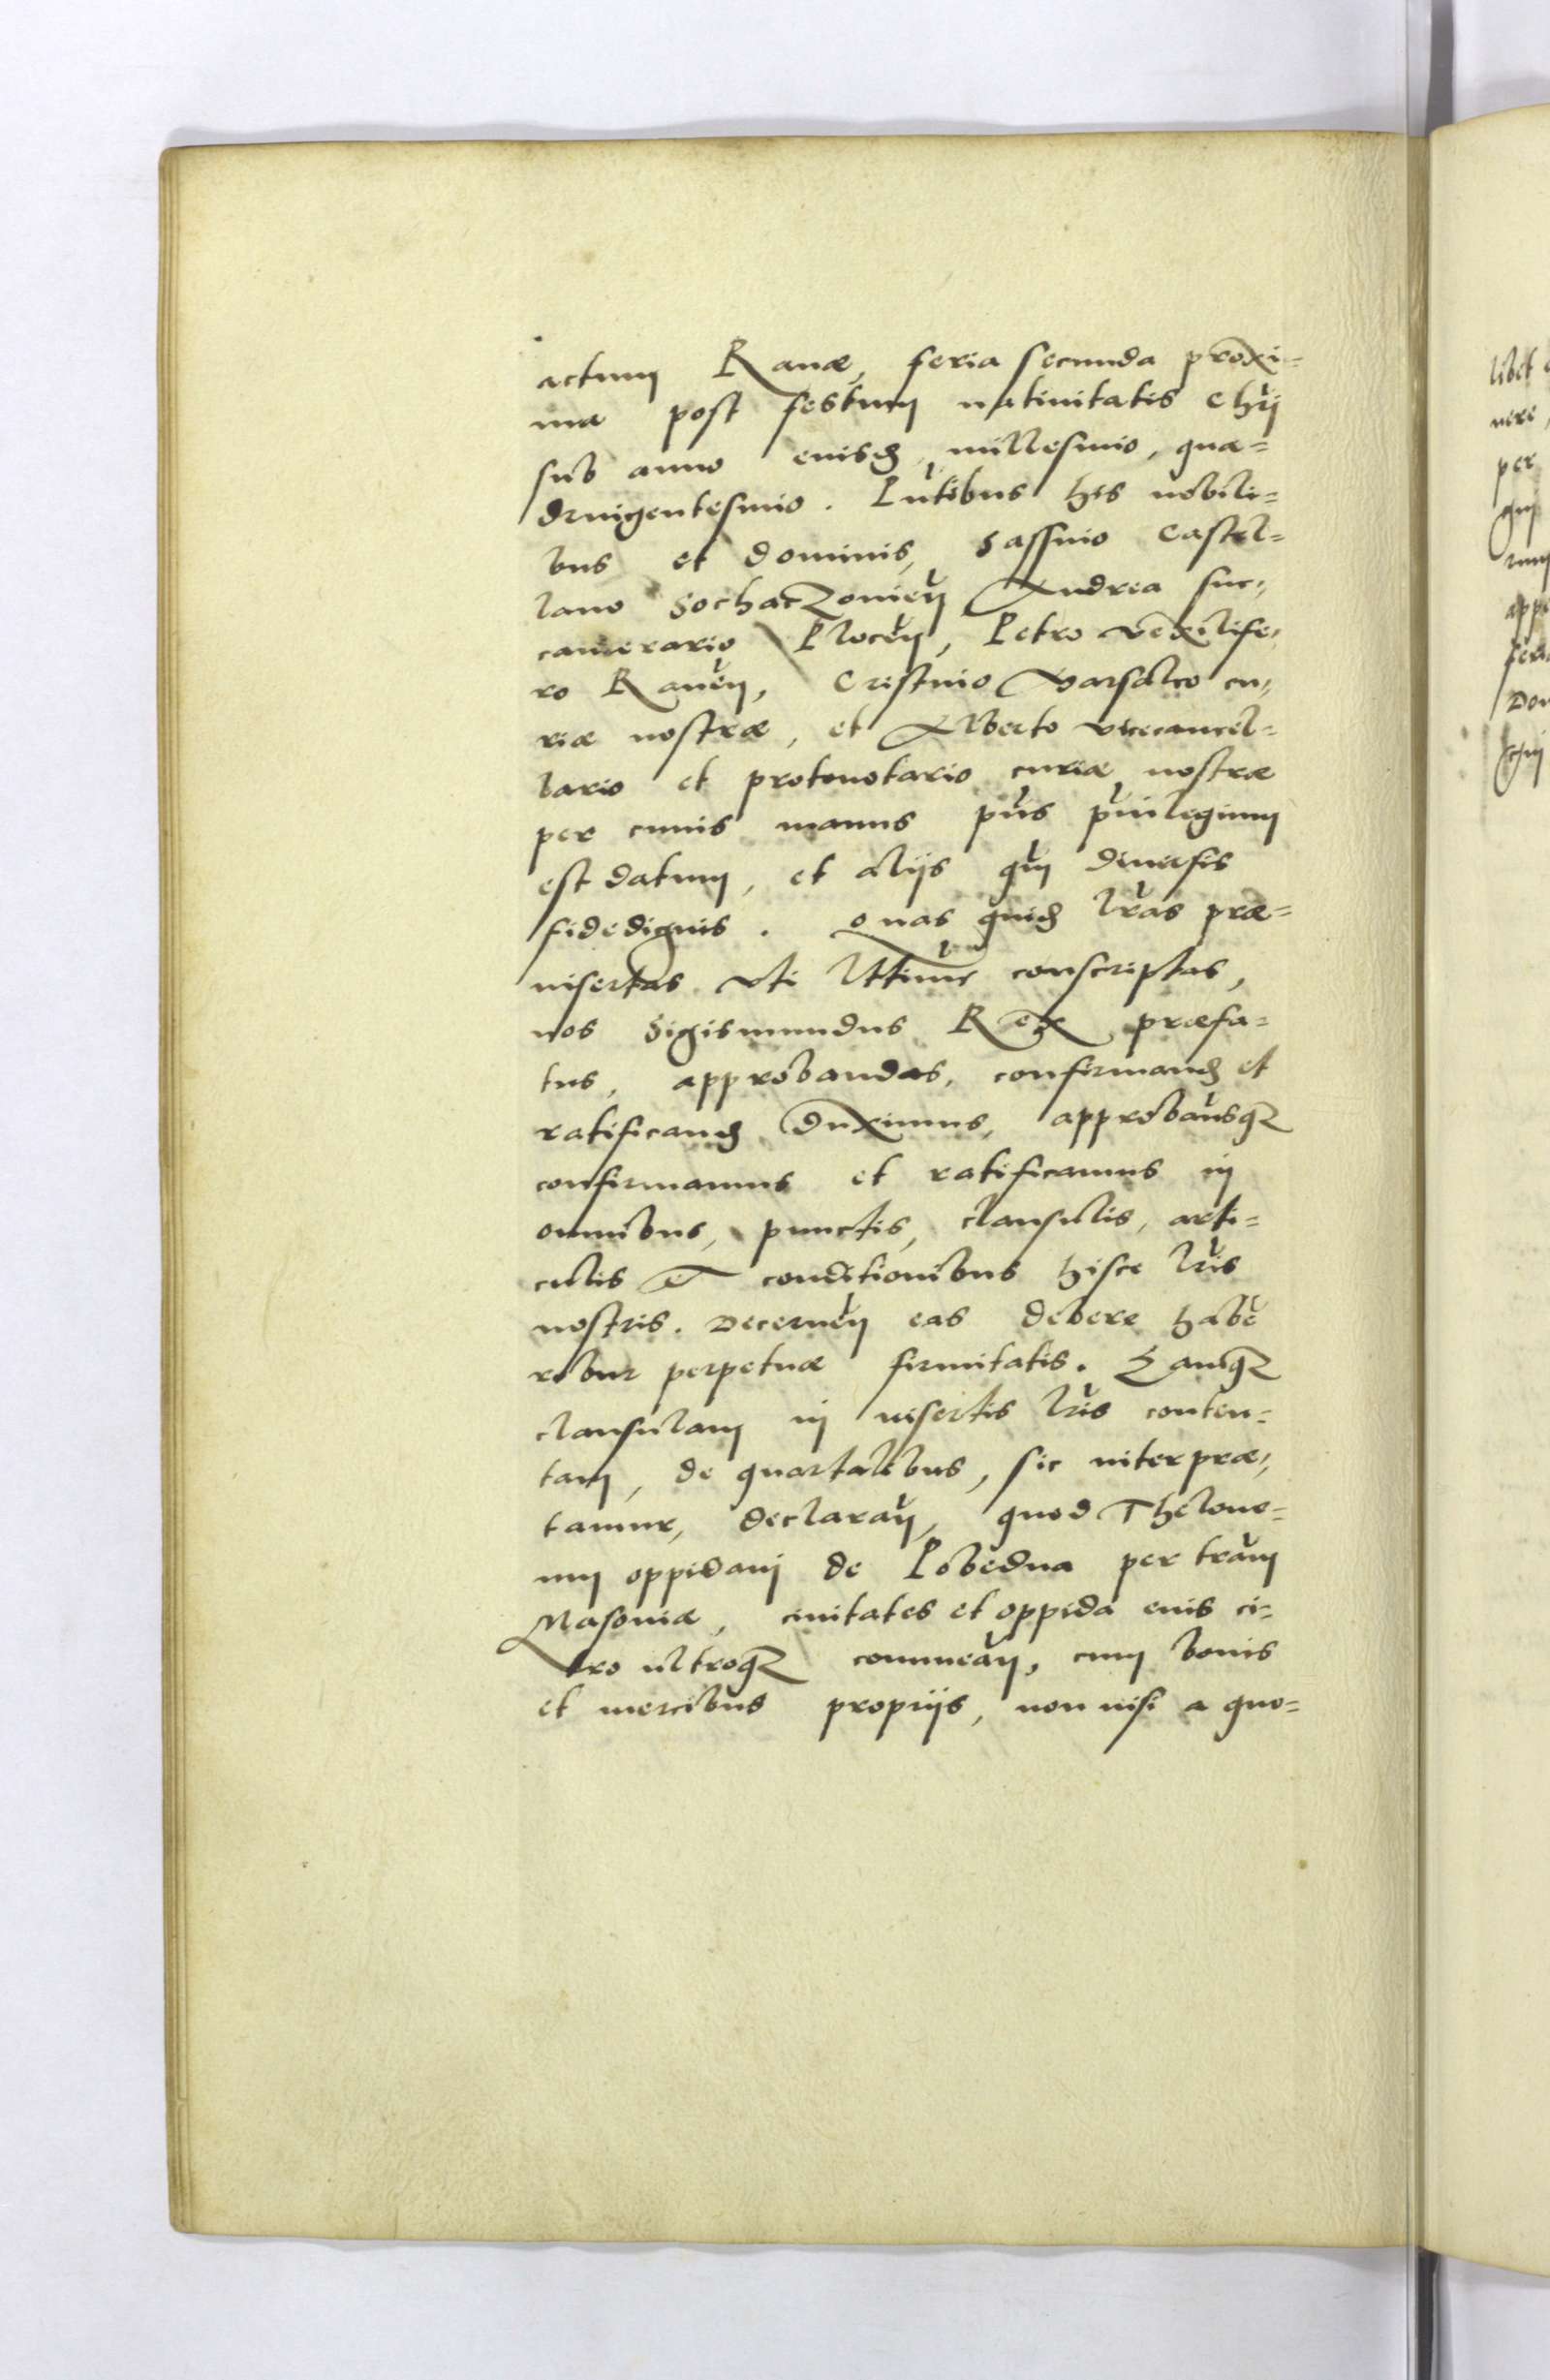 actum Rauæ, feria secunda proxi=
ma post festum natiuitatis Chri
sub anno eiusd millesimo, qua=
dringentesimo. Pntibus his nobili=
bus et dominis, Sassino Castel=
lano Sochaczouien Andrea suc,
camerario Plocen, Petro vexilife,
ro Rauen, Cristino Marsalco cu,
riæ nostræ, et Alberto vicecancel=
lario et protonotario curiæ nostræ
per cuius manus pns priuilegium
est datum, et alijs qm diuersis
fidedignis. Quas quid lras præ=
insertas vti lttime conscriptas,
nos Sigismundus Rex præfa=
tus, approbandas, confirmand et
ratificand duximus, approbausq
confirmamus et ratificamus in
omnibus, punctis, clausulis, arti=
culis et conditionibus hisce lris
nostris. Decernen eas debere habe
robur perpetuæ firmitatis. Eamq
clausulam in insertis lris conten=
tam, de quartalibus, sic interpræ,
tamur, declaran, quod Thelone=
um oppidani de Pobedna per tram
Masouiæ, ciuitates et oppida eius ci=
tro ultroq commean, cum bonis
et mercibus propriis, non nisi a quo=
libet
nere,
per